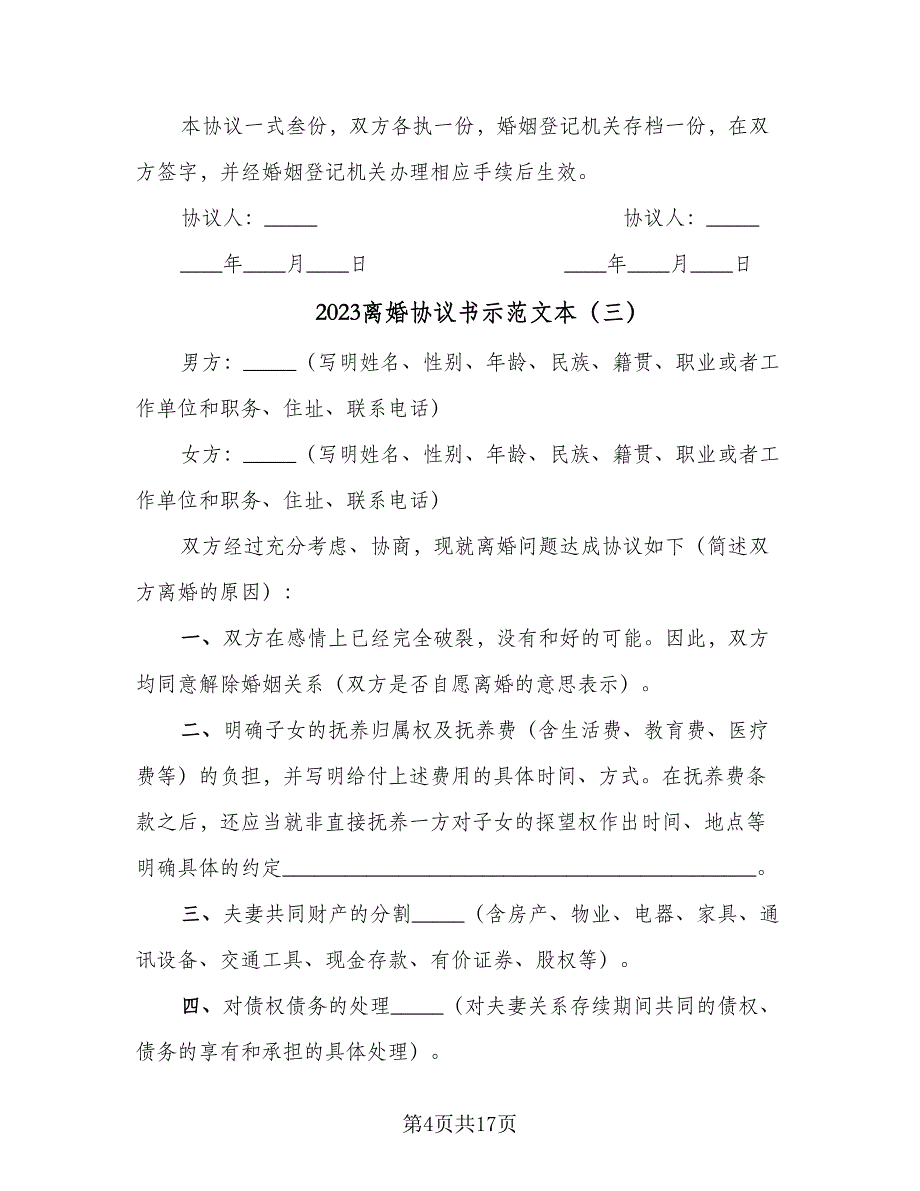 本协议一式叁份，双方各执一份，婚姻登记机关存档一份，在双
方签字，并经婚姻登记机关办理相应手续后生效。
协议人：_____ 协议人：_____
____年____月____日 ____年____月____日
2023离婚协议书示范文本（三）
男方：_____（写明姓名、性别、年龄、民族、籍贯、职业或者工
作单位和职务、住址、联系电话）
女方：_____（写明姓名、性别、年龄、民族、籍贯、职业或者工
作单位和职务、住址、联系电话）
双方经过充分考虑、协商，现就离婚问题达成协议如下（简述双
方离婚的原因）：
一、双方在感情上已经完全破裂，没有和好的可能。因此，双方
均同意解除婚姻关系（双方是否自愿离婚的意思表示）。
二、明确子女的抚养归属权及抚养费（含生活费、教育费、医疗
费等）的负担，并写明给付上述费用的具体时间、方式。在抚养费条
款之后，还应当就非直接抚养一方对子女的探望权作出时间、地点等
明确具体的约定_____________________________________________。
三、夫妻共同财产的分割_____（含房产、物业、电器、家具、通
讯设备、交通工具、现金存款、有价证券、股权等）。
四、对债权债务的处理_____（对夫妻关系存续期间共同的债权、
债务的享有和承担的具体处理）。
第4页共17页